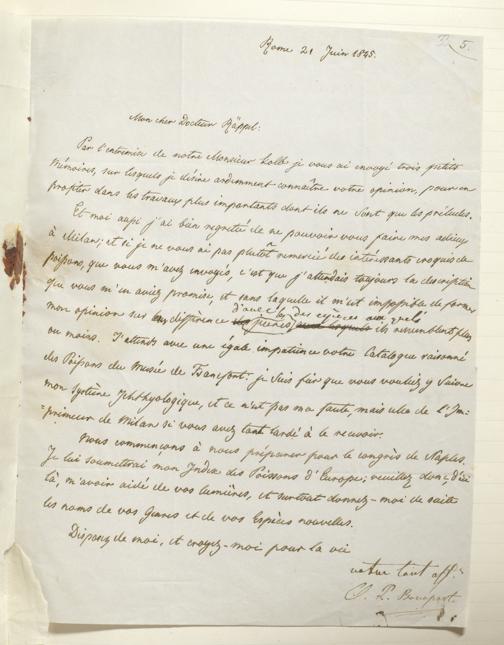 5.
Rome 21 Juin 1845.
Mon cher Docteur Rüppel:
Par l'entremise de notre Monsieur Kolb je vous ai envoyé trois petits
Mémoires, sur lesquels je désire ardemment connaitre votre opinion, pour en
profiter dans les travaux plus importants dont ils ne sont que les préludes.
Et moi aussi j'ai bien regretté de ne pouvoir vous faire mes adieux
à Milan; et si je ne vous ai pas plutôt remercié des intéressants croquis de
poissons, que vous m'avez envoyés, c'est que j'attendais toujours la description
que vous m'en aviez promise, et sans laquelle il m'est impossible de former
d'avec les des espèces aux quels
mon opinion sur différence genres ils ressemblent plus
ou moins. J'attends avec une égale impatience votre Catalogue raisonné
des Poissons du Musée de Francfort: je suis sûr que vous voulez y suivre
mon Système Ichthyologique, et ce n'est pas ma faute, mais celle de l'Im-
primeur de Milan si vous avez tant tardé à le recevoir.
Nous commençons à nous préparer pour le congrès de Naples.
Je lui soumettrai mon Index des Poissons d'Europe; veuillez donc, d'ici
là, m'avoir aidé de vos lumières, et surtout donnez-moi de suite
les noms de vos Genres et de vos Espèces nouvelles.
Disposez de moi, et croyez-moi pour la vie
votre tout aff.
C. L. Bonaparte